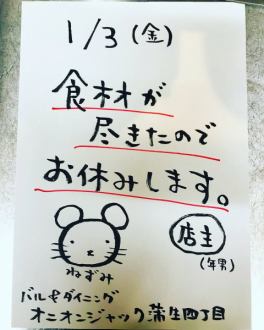 1/3(金)
食材が
尽きたので
お休みします。
店主
(年男)
ねずみ
バル&ダイニング
オニオンジャック蒲生四丁目